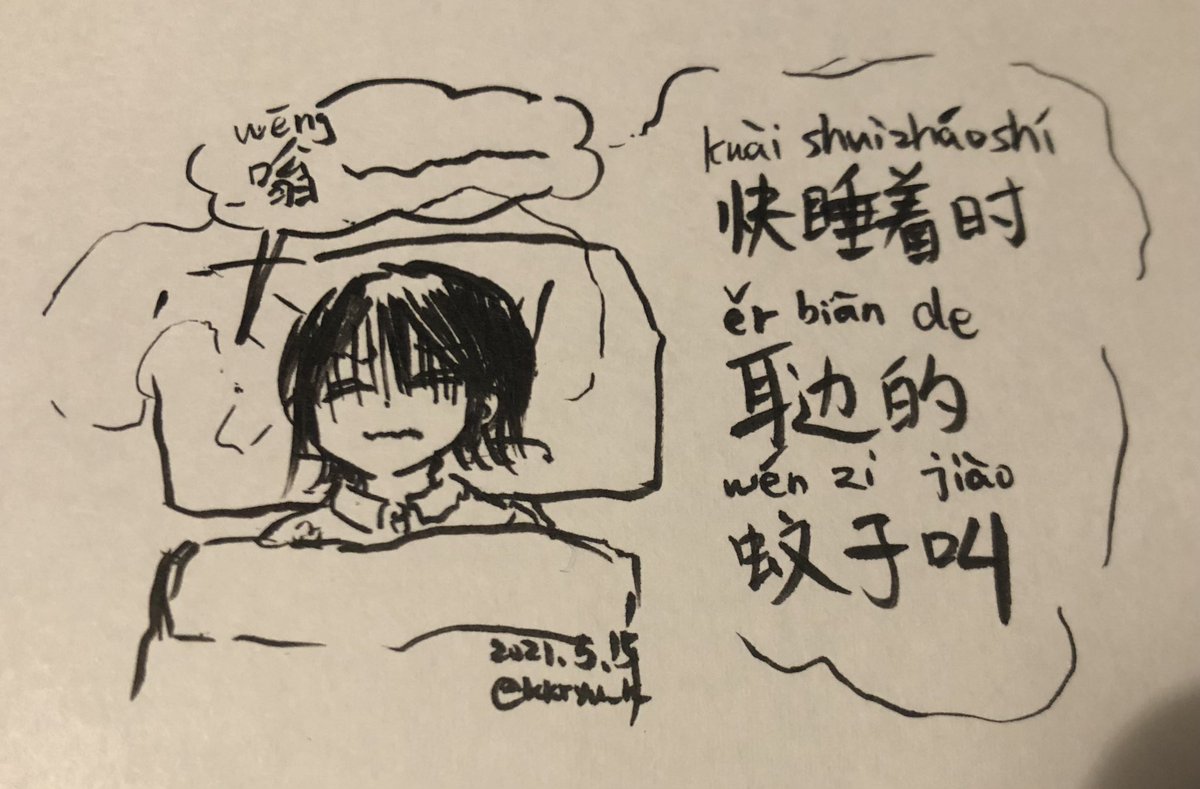 wēng
嗡
kuài shuìzháoshí
快睡着时
ěr biān de
耳边的
wén zi jiào
蚊子叫
2021.5.15